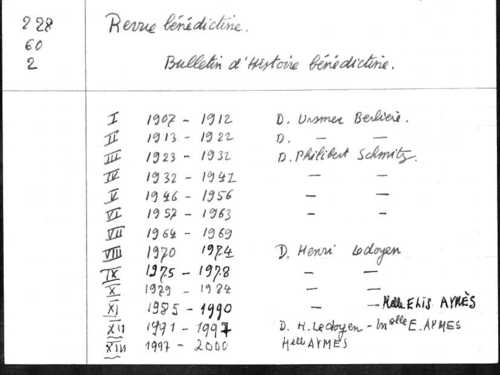 228 Revue bénédictine.
60
2 Bulletin d'Histoire bénédictine.
I 1907 - 1912 D. Ursmer Berlière.
II 1913 - 1922 D. — —
III 1923 - 1932 D. Philibert Schmitz.
IV 1932 - 1942 — —
V 1946 - 1956 — —
VI 1957 - 1963 — —
VII 1964 - 1969
VIII 1970 1974 D. Henri Ledoyen
IX 1975 - 1978 — —
X 1979 - 1984 — —
XI 1985 - 1990 — — Melle Elis AYMÈS
XII 1991 - 1997 D. H. Ledoyen - Melle E. AYMES
XIII 1997 - 2000 Melle AYMES